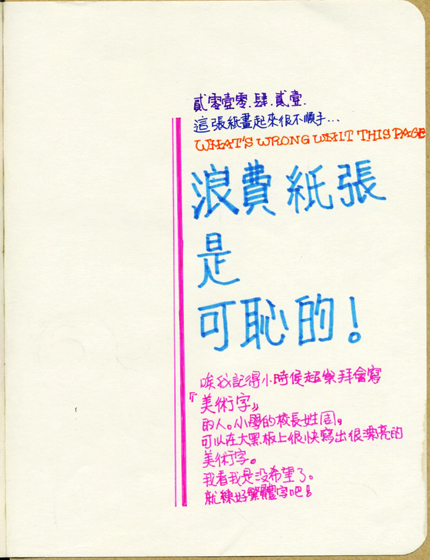 貳零壹零.肆.貳壹.
這張紙畫起來很不順手...
WHAT'S WRONG WHIT THIS PAGE
浪費紙張
是
可恥的!
唉我記得小時候超崇拜會寫
『美術字』
的人。小學的校長姓周,
可以在大黑板上很快寫出很漂亮的
美術字。
我看我是沒希望了。
就練好繁體字吧!